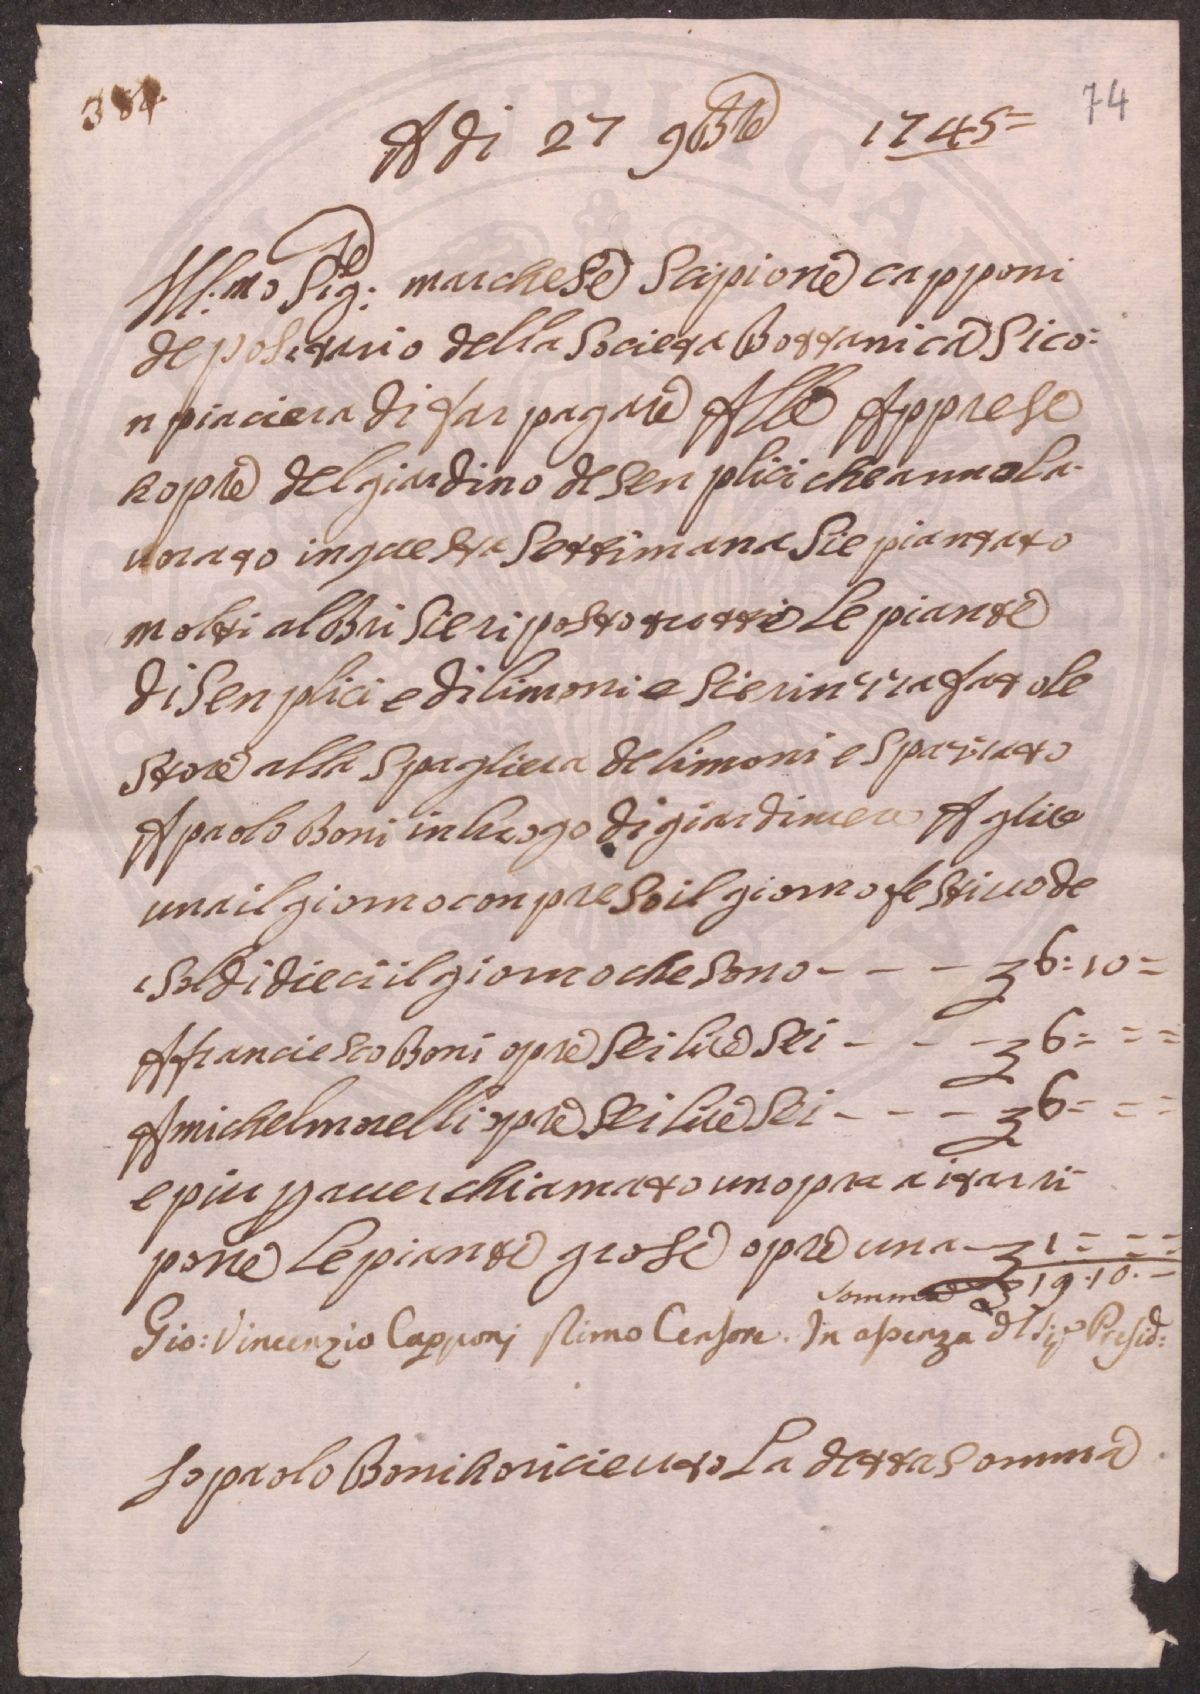 384. 74
A di 27 9bre 1745=
Ill:mo Sigre: marchese Scipione capponi
depositario della Societa Bottanica Si co:
n piaciera di far pagare Alle Apprese
hopre del giardino de sen plici che anno la
uorato in questa Settimana Sie piantato
molti alBri Sie riposto tutte Le piante
di Sen plici e di limoni e Sie rinzzafato le
store alla Spagliera de limoni e spazzato
A paolo Boni in luogo di giardiniero A glire
una il giorno con preso il giorno festiuo de
soldi dieci il giorno che sono - - - 6: 10 =
A Franciesco Boni opre Sei lire Sei - - - 6= = =
A michel morelli opre Sei lire Sei - - - 6= = =
e piu p auer chiamato un opra aitar ri
porre Le piante grose opre una - 1= = =
Somma 19.10.-
Gio: Vincenzio Capponj Primo Censore. In assenza del Sigre Presid:
Io paolo Boni ho riceuto La detta Somma